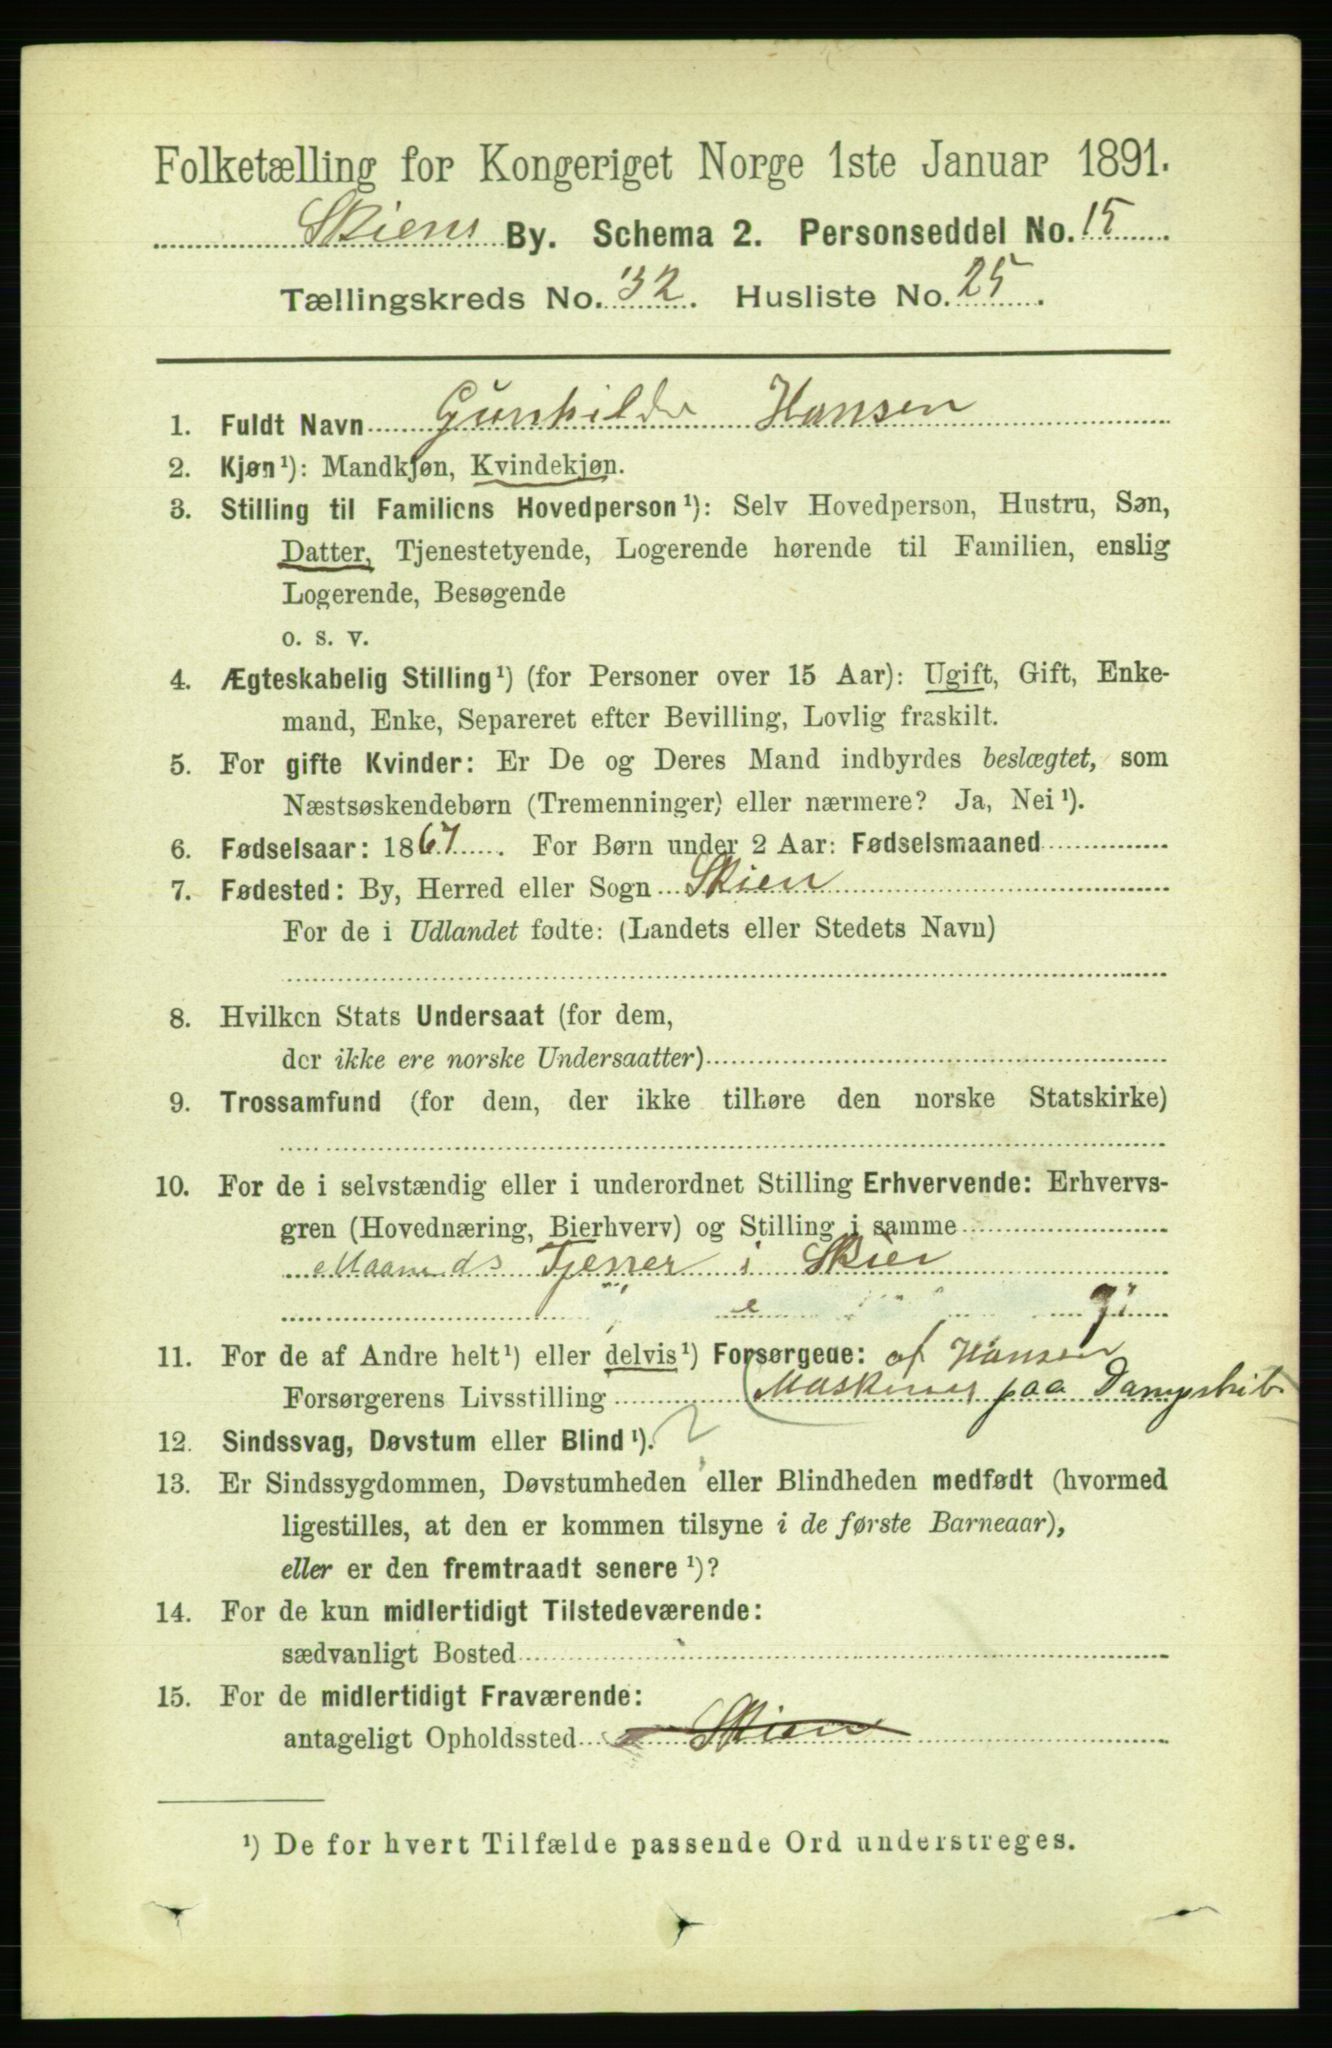 Folketælling for Kongeriget Norge 1ste Januar 1891.
Skiens By. Schema 2. Personseddel No. 15
Tællingskreds No. 32. Husliste No. 25.
1. Fuldt Navn Gunhilde Hansen
2. Kjøn¹): Mandkjøn, Kvindekjøn.
3. Stilling til Familiens Hovedperson¹): Selv Hovedperson, Hustru, Søn,
Datter, Tjenestetyende, Logerende hørende til Familien, enslig
Logerende, Besøgende
o. s. v.
4. Ægteskabelig Stilling¹) (for Personer over 15 Aar): Ugift, Gift, Enke-
mand, Enke, Separeret efter Bevilling, Lovlig fraskilt.
5. For gifte Kvinder: Er De og Deres Mand indbyrdes beslægtet, som
Næstsøskendebørn (Tremenninger) eller nærmere? Ja, Nei¹).
6. Fødselsaar: 1867. For Børn under 2 Aar: Fødselsmaaned
7. Fødested: By, Herred eller Sogn Skien
For de i Udlandet fødte: (Landets eller Stedets Navn)
8. Hvilken Stats Undersaat (for dem,
der ikke ere norske Undersaatter)
9. Trossamfund (for dem, der ikke tilhøre den norske Statskirke)
10. For de i selvstændig eller i underordnet Stilling Erhvervende: Erhvervs-
gren (Hovednæring, Bierhverv) og Stilling i samme
Maaneds Tjener i Skien
11. For de af Andre helt¹) eller delvis¹) Forsørgede: af Hansen
Forsørgerens Livsstilling (Maskinist paa Dampskib
12. Sindssvag, Døvstum eller Blind¹).
13. Er Sindssygdommen, Døvstumheden eller Blindheden medfødt (hvormed
ligestilles, at den er kommen tilsyne i de første Barneaar),
eller er den fremtraadt senere¹)?
14. For de kun midlertidigt Tilstedeværende:
sædvanligt Bosted
15. For de midlertidigt Fraværende:
antageligt Opholdssted Skien
¹) De for hvert Tilfælde passende Ord understreges.